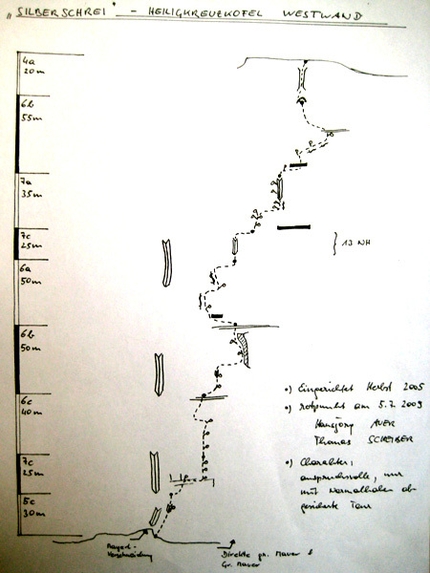 "SILBERSCHREI" - HEILIGKREUZKOFEL WESTWAND
4a
20m
6b
55m
7a
35m
7c
25m
13 NH
6a
50m
6b
50m
6c
40m
7c
25m
5c
30m
•) Eingerichtet Herbst 2005
•) rotpunkt am 5.7.2009
Hansjörg AUER
Thomas SCHEIBER
•) Charakter:
anspruchsvolle, nur
mit Normalhaken ab-
gesicherte Tour
Mayerl-
Verschneidung
Direkte gr. Mauer &
Gr. Mauer